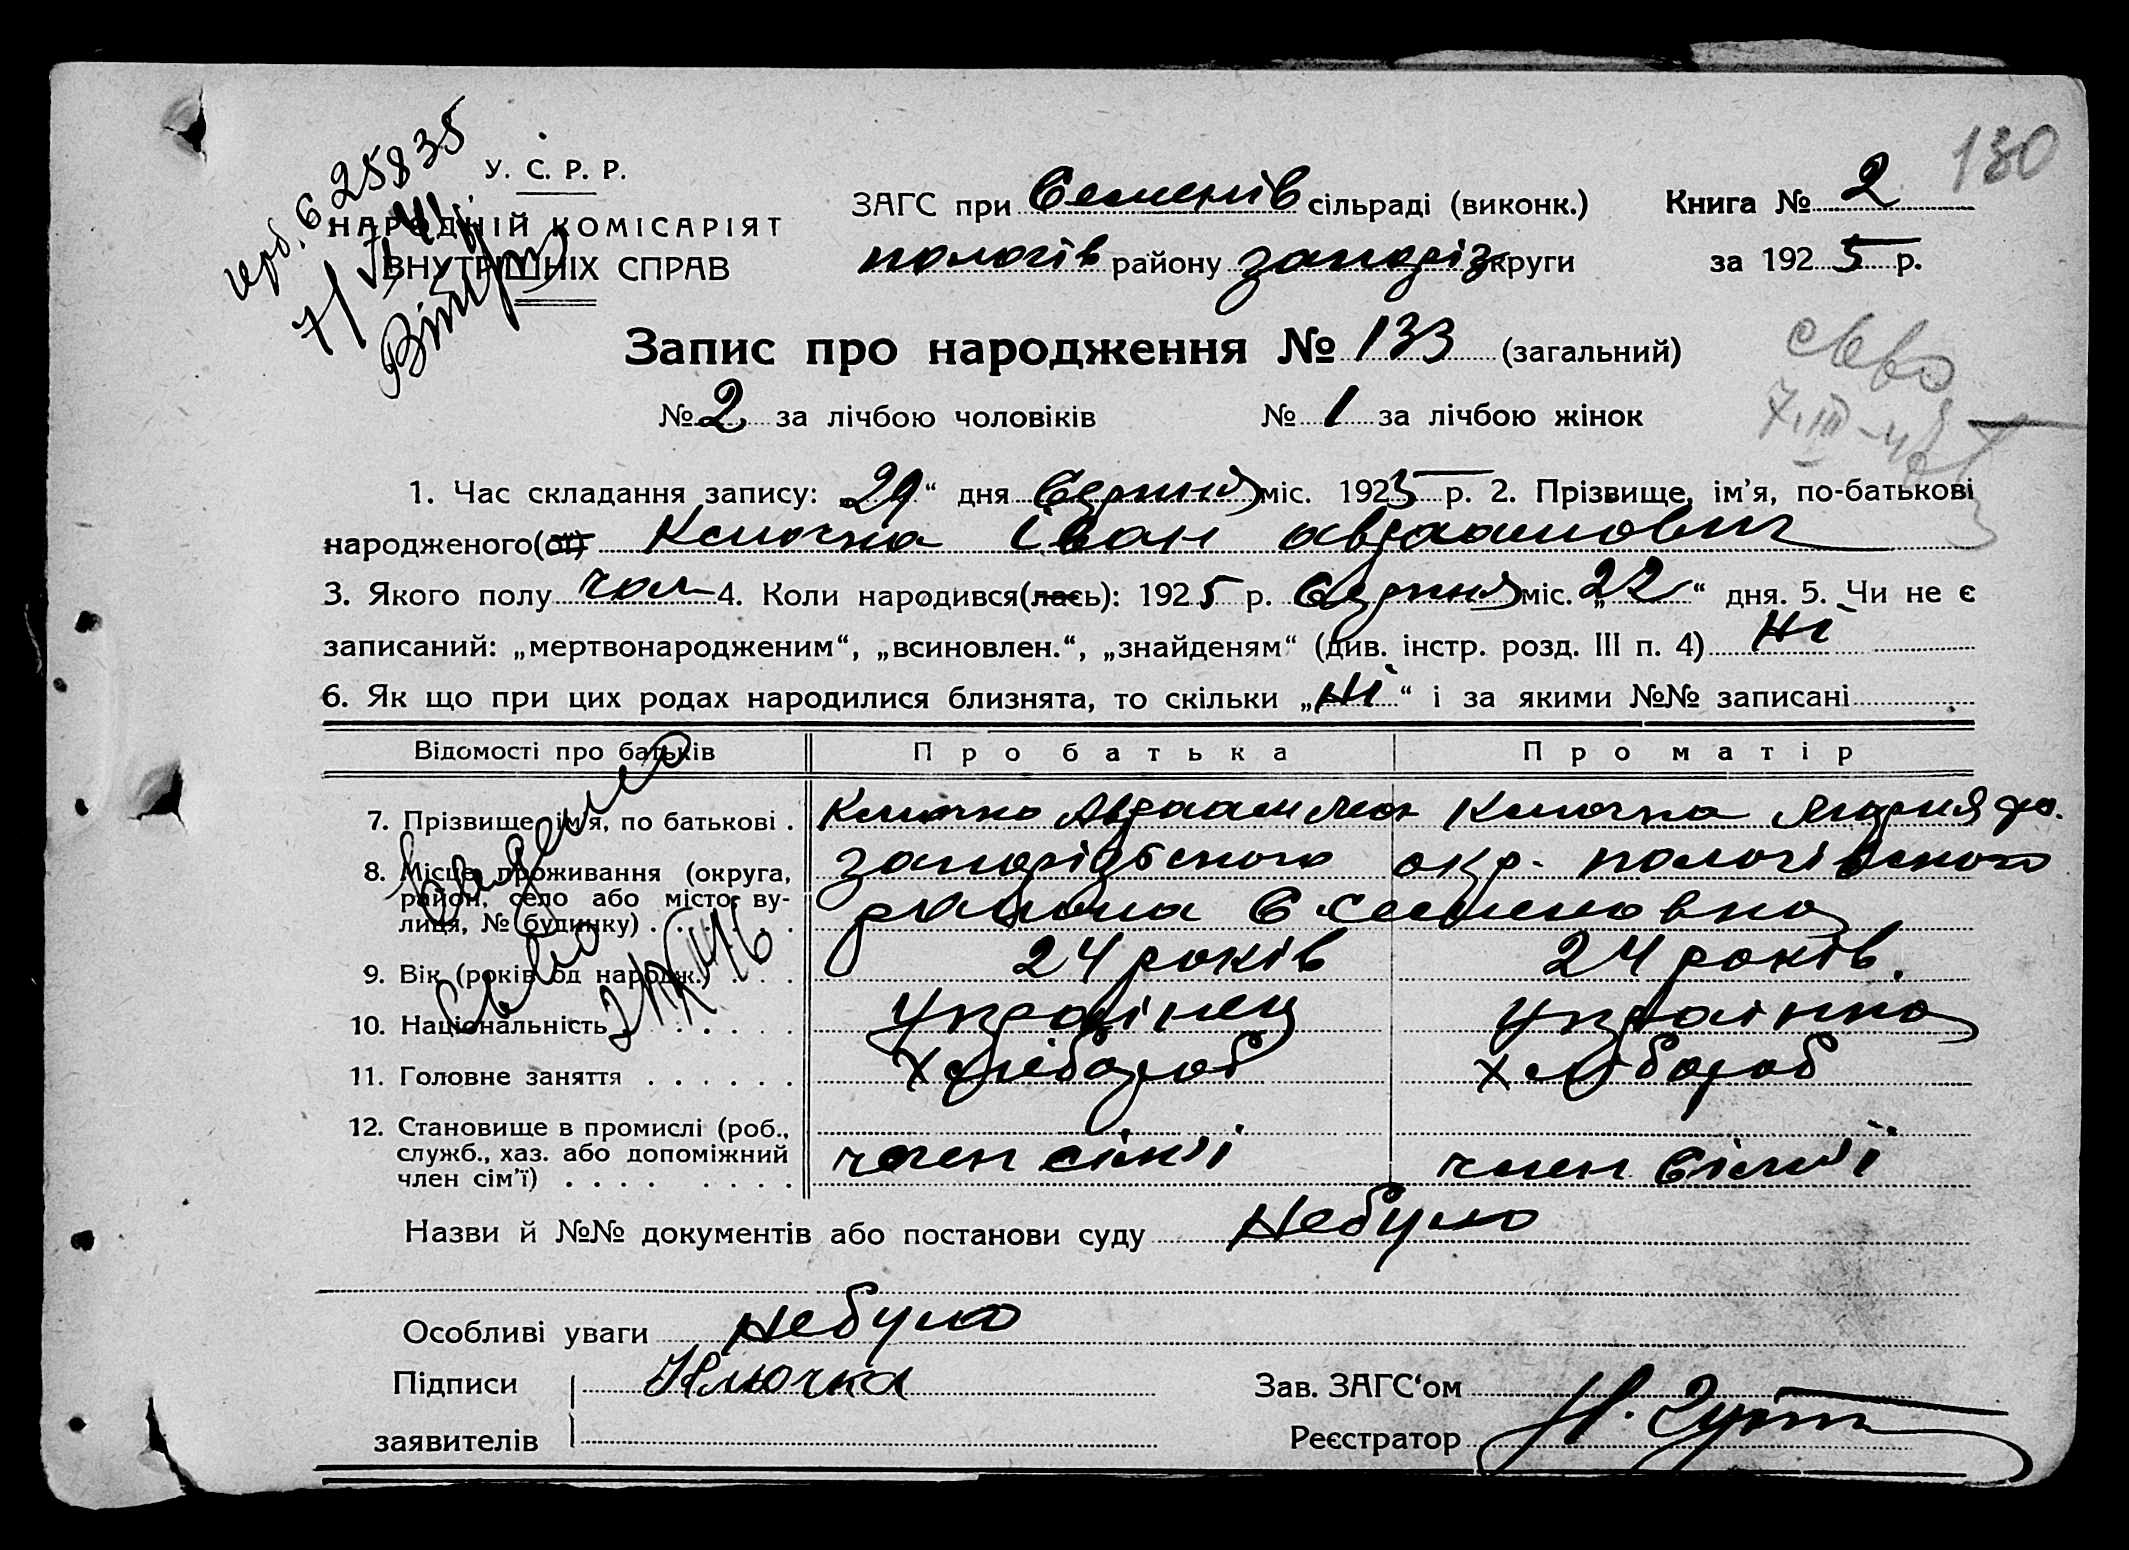 130
У. С. Р. Р.
НАРОДНІЙ КОМІСАРІЯТ
ВНУТРІШНІХ СПРАВ
625835
ЗАГС при Семенів сільраді (виконк.)
пологів району запоріз округи
Книга № 2
за 1925 р.
Запис про народження № 133 (загальний)
№ 2 за лічбою чоловіків № 1 за лічбою жінок
1. Час складання запису: „29“ дня Серпня міс. 1925 р. 2. Прізвище, ім'я, по-батькові
народженого(ої) Ключка Іван авраамович
3. Якого полу чол 4. Коли народився(лась): 1925 р. Серпня міс. „22“ дня. 5. Чи не є
записаний: „мертвонародженим“, „всиновлен.“, „знайденям“ (див. інстр. розд. III п. 4) Ні
6. Як що при цих родах народилися близнята, то скільки „Ні“ і за якими №№ записані
Відомості про батьків Про батька Про матір
7. Прізвище, ім'я, по батькові . Ключко Авраам Ключка Мария
8. Місце проживання (округа, район, село або місто, вулиця, № будинку) запорізського окр. пологівского
района С. Семеновка
9. Вік (років од народж.) 24 років 24 років.
10. Національність Украінец Украінка
11. Головне заняття хлібороб хлібороб
12. Становище в промислі (роб., служб., хаз. або допоміжний член сім'ї) член сім'і член сім'ї
Назви й №№ документів або постанови суду Небуло
Особливі уваги Небуло
Підписи Ключка
заявителів
Зав. ЗАГС'ом
Реєстратор